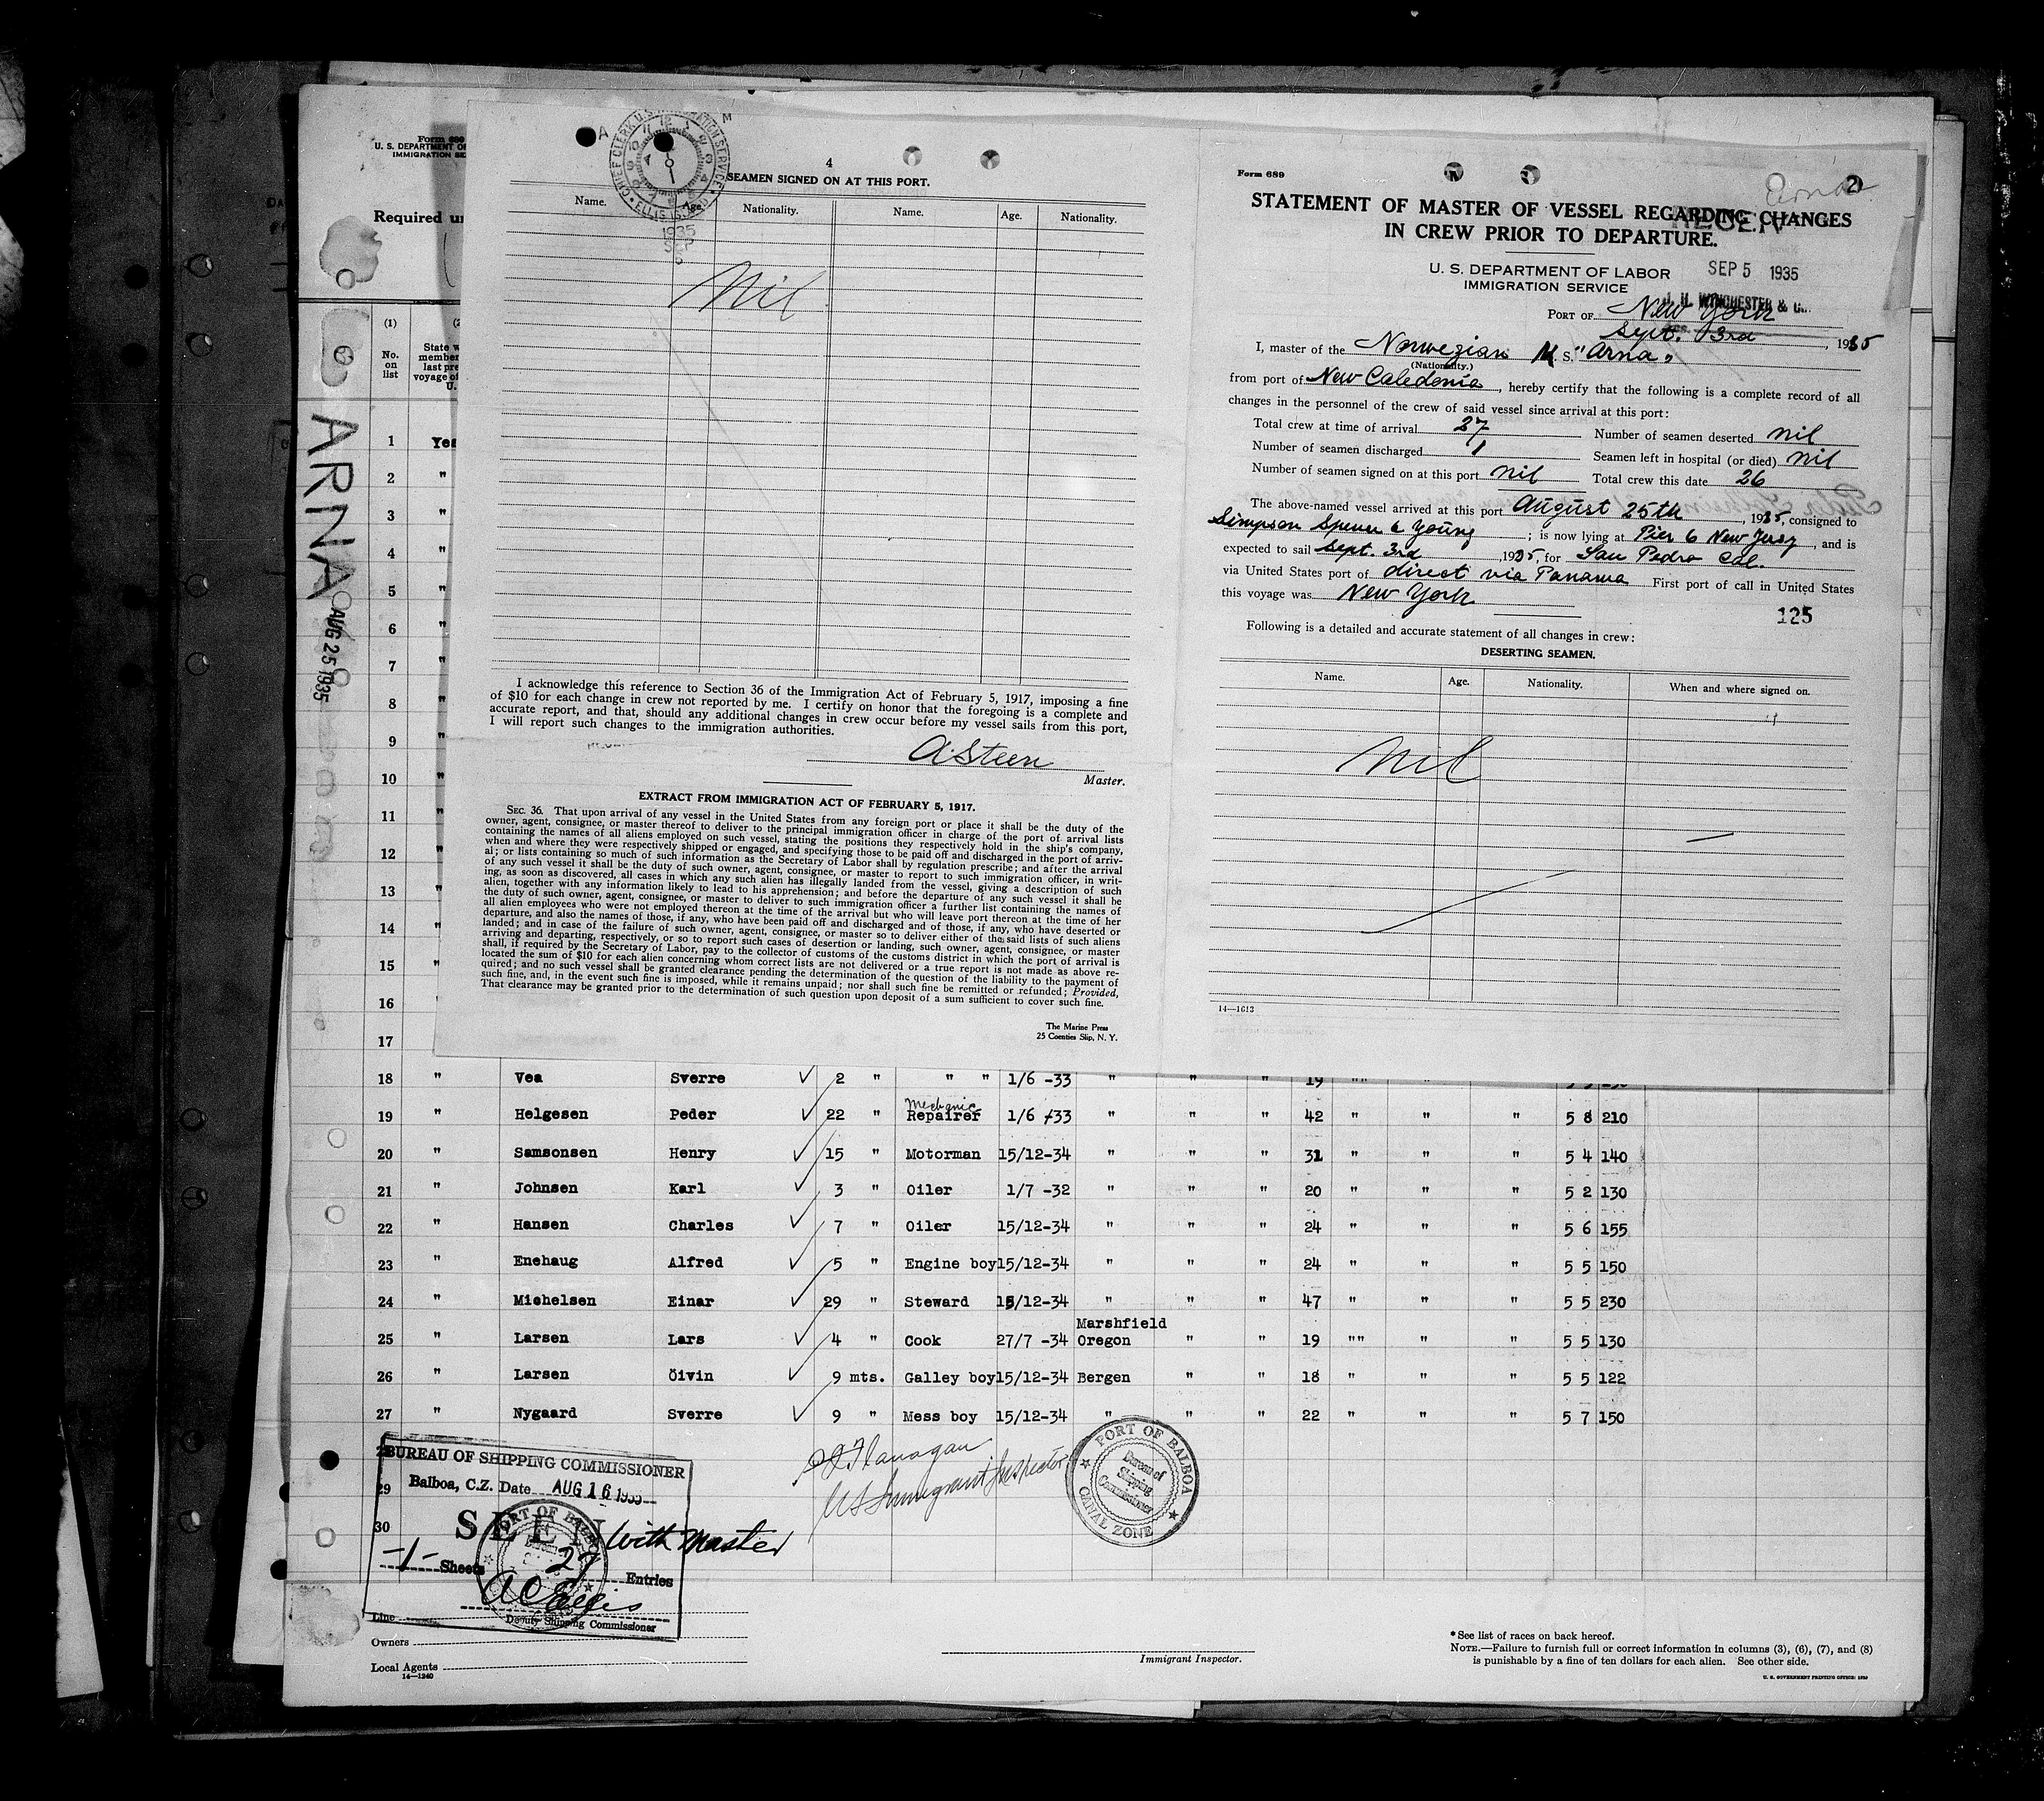 Form 689
U. S. DEPARTMENT OF
IMMIGRATION SE
Required un
(1)
No. on list
State w
member
last pre
voyage of
U.
ARNA
AUG 25 1935
1 Yes
2 "
3 "
4 "
5 "
6 "
7 "
8 "
9 "
10 "
11 "
12 "
13 "
14 "
15 "
16
17
CHIEF CLERK U.S. IMMIGRATION SERVICE
ELLIS ISLAND
1935
SEP
5
4
SEAMEN SIGNED ON AT THIS PORT.
Name. Age. Nationality. Name. Age. Nationality.
Nil
I acknowledge this reference to Section 36 of the Immigration Act of February 5, 1917, imposing a fine
of $10 for each change in crew not reported by me. I certify on honor that the foregoing is a complete and
accurate report, and that, should any additional changes in crew occur before my vessel sails from this port,
I will report such changes to the immigration authorities.
A. Steen
Master.
EXTRACT FROM IMMIGRATION ACT OF FEBRUARY 5, 1917.
SEC. 36. That upon arrival of any vessel in the United States from any foreign port or place it shall be the duty of the
owner, agent, consignee, or master thereof to deliver to the principal immigration officer in charge of the port of arrival lists
containing the names of all aliens employed on such vessel, stating the positions they respectively hold in the ship's company,
when and where they were respectively shipped or engaged, and specifying those to be paid off and discharged in the port of arriv-
al; or lists containing so much of such information as the Secretary of Labor shall by regulation prescribe; and after the arrival
of any such vessel it shall be the duty of such owner, agent, consignee, or master to report to such immigration officer, in writ-
ing, as soon as discovered, all cases in which any such alien has illegally landed from the vessel, giving a description of such
alien, together with any information likely to lead to his apprehension; and before the departure of any such vessel it shall be
the duty of such owner, agent, consignee, or master to deliver to such immigration officer a further list containing the names of
all alien employees who were not employed thereon at the time of the arrival but who will leave port thereon at the time of her
departure, and also the names of those, if any, who have been paid off and discharged and of those, if any, who have deserted or
landed; and in case of the failure of such owner, agent, consignee, or master so to deliver either of the said lists of such aliens
arriving and departing, respectively, or so to report such cases of desertion or landing, such owner, agent, consignee, or master
shall, if required by the Secretary of Labor, pay to the collector of customs of the customs district in which the port of arrival is
located the sum of $10 for each alien concerning whom correct lists are not delivered or a true report is not made as above re-
quired; and no such vessel shall be granted clearance pending the determination of the question of the liability to the payment of
such fine, and, in the event such fine is imposed, while it remains unpaid; nor shall such fine be remitted or refunded; Provided,
That clearance may be granted prior to the determination of such question upon deposit of a sum sufficient to cover such fine.
The Marine Press
25 Coenties Slip, N. Y.
Form 689
2
Arna
STATEMENT OF MASTER OF VESSEL REGARDING CHANGES
IN CREW PRIOR TO DEPARTURE.
RECEIV
U. S. DEPARTMENT OF LABOR
IMMIGRATION SERVICE
SEP 5 1935
J. H. WINCHESTER & Co.
PORT OF New York
Sept. 3rd, 1935
I, master of the Norwegian M. S. "Arna"
(Nationality.)
from port of New Caledonia, hereby certify that the following is a complete record of all
changes in the personnel of the crew of said vessel since arrival at this port:
Total crew at time of arrival 27 Number of seamen deserted nil
Number of seamen discharged 1 Seamen left in hospital (or died) nil
Number of seamen signed on at this port nil Total crew this date 26
The above-named vessel arrived at this port August 25th, 1935, consigned to
Simpson Spence & Young; is now lying at Pier 6 New Jersy, and is
expected to sail Sept. 3rd, 1935, for San Pedro Cal.
via United States port of direct via Panama First port of call in United States
this voyage was New York
125
Following is a detailed and accurate statement of all changes in crew:
DESERTING SEAMEN.
Name. Age. Nationality. When and where signed on.
Nil
14—1613
18 " Vea Sverre 2 " " " 1/6 -33 " " " 19 "" "
19 " Helgesen Peder 22 " Mechanic Repairer 1/6 -33 " " " 42 " " " 5 8 210
20 " Samsonsen Henry 15 " Motorman 15/12-34 " " " 31 " " " 5 4 140
21 " Johnsen Karl 3 " Oiler 1/7 -32 " " " 20 " " " 5 2 130
22 " Hansen Charles 7 " Oiler 15/12-34 " " " 24 " " " 5 6 155
23 " Enehaug Alfred 5 " Engine boy 15/12-34 " " " 24 " " " 5 5 150
24 " Michelsen Einar 29 " Steward 15/12-34 " " " 47 " " " 5 5 230
25 " Larsen Lars 4 " Cook 27/7 -34 Marshfield Oregon " " 19 "" " " 5 5 130
26 " Larsen Öivin 9 mts. Galley boy 15/12-34 Bergen " " 18 " " " 5 5 122
27 " Nygaard Sverre 9 " Mess boy 15/12-34 " " " 22 " " " 5 7 150
29
30
BUREAU OF SHIPPING COMMISSIONER
Balboa, C.Z. Date AUG 16 1935
SEEN
With Master
-1- Sheets 27 Entries
Deputy Shipping Commissioner
PORT OF BALBOA
Flanagan
US Immigrant Inspector
PORT OF BALBOA
Bureau of
Shipping
Commissioner
CANAL ZONE
Line
Owners
Local Agents
14—1240
Immigrant Inspector.
* See list of races on back hereof.
NOTE.—Failure to furnish full or correct information in columns (3), (6), (7), and (8)
is punishable by a fine of ten dollars for each alien. See other side.
U. S. GOVERNMENT PRINTING OFFICE: 1930